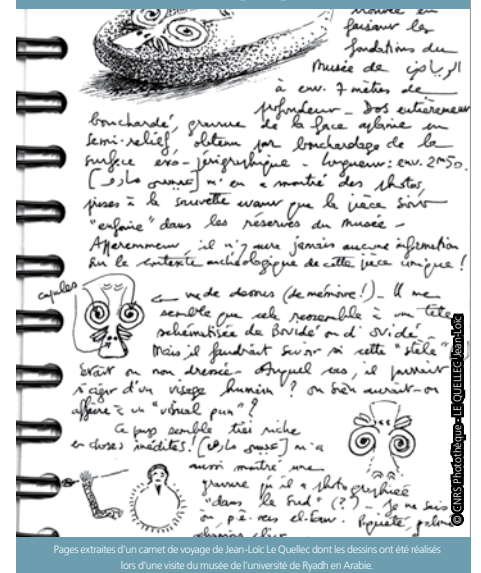 trouvée en
faisant les
fondations du
Musée de الرياض
à env. 7 mètres de
profondeur _ Dos entièrement
bouchardé, gravure de la face aplanie en
semi-relief, obtenu par bouchardage de la
surface - Longueur: env. 2m50.
m'en a montré des photos,
prises à la sauvette avant que la pièce soit
"enfouie" dans les réserves du Musée _
Apparemment, il n'y aura jamais aucune information
sur le contexte archéologique de cette pièce unique !
cupules
← vue de dessus (de mémoire!) _ Il me
semble que cela ressemble à une tête
schématisée de Bovidé ou d'ovidé _
Mais il faudrait savoir si cette "stèle"
était ou non dressée _ Auquel cas, il pourrait
s'agir d'un visage humain ? ou bien aurait-on
affaire à un "visual pun" ?
Ce pays semble très riche
en choses inédites! m'a
aussi montré une
gravure qu'il a photographiée
"dans le Sud" (?) _ Je ne sais
où, p.ê. vers el-Faw. Piqueté,
© CNRS Photothèque - LE QUELLEC Jean-Loïc
Pages extraites d'un carnet de voyage de Jean-Loïc Le Quellec dont les dessins ont été réalisés
lors d'une visite du musée de l'université de Ryadh en Arabie.